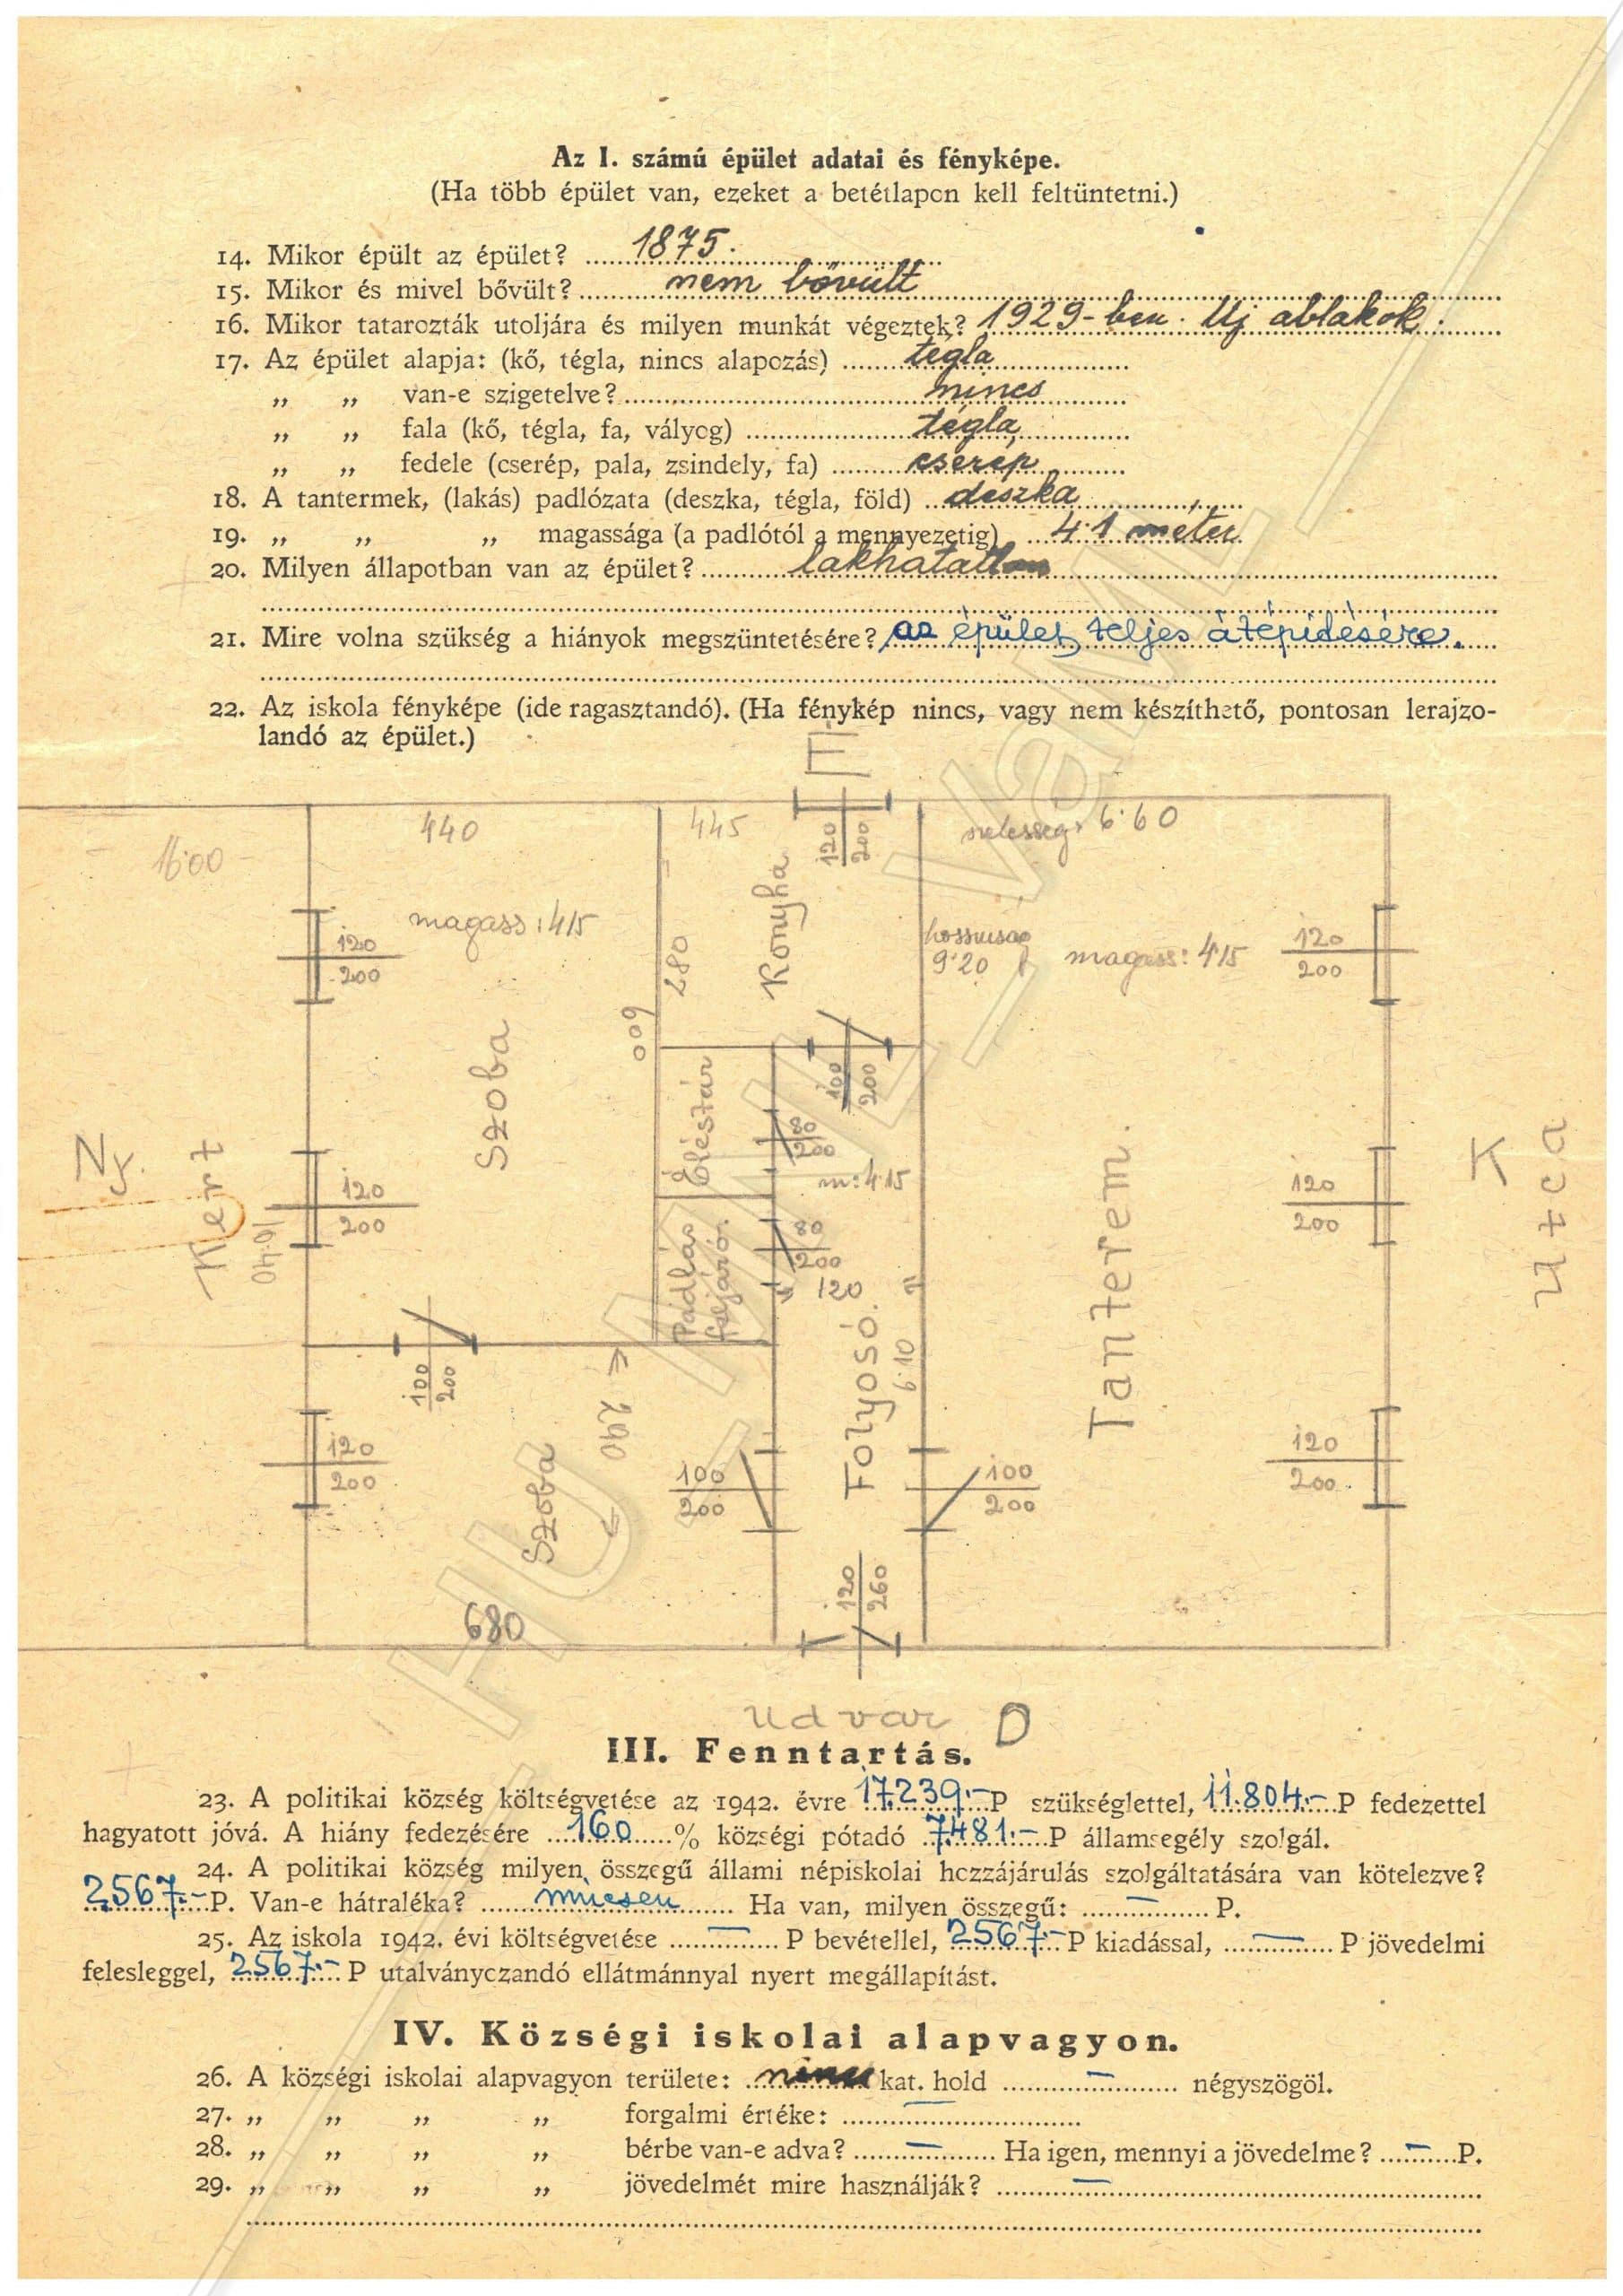 Az I. számú épület adatai és fényképe.
(Ha több épület van, ezeket a betétlapon kell feltüntetni.)
14. Mikor épült az épület? 1875.
15. Mikor és mivel bővült? nem bővült
16. Mikor tatarozták utoljára és milyen munkát végeztek? 1929-ben. Uj ablakok.
17. Az épület alapja: (kő, tégla, nincs alapozás) tégla
„ „ van-e szigetelve? nincs
„ „ fala (kő, tégla, fa, vályog) tégla
„ „ fedele (cserép, pala, zsindely, fa) cserép
18. A tantermek, (lakás) padlózata (deszka, tégla, föld) deszka
19. „ „ „ magassága (a padlótól a mennyezetig) 4·1 méter
20. Milyen állapotban van az épület? lakhatatlan
21. Mire volna szükség a hiányok megszüntetésére? az épület teljes átépítésére.
22. Az iskola fényképe (ide ragasztandó). (Ha fénykép nincs, vagy nem készíthető, pontosan lerajzo-
landó az épület.)
É
440 445 szélesség 6·60
16·00
120
200
Konyha
magass: 415
120
200
280
600
hosszuság
9·20
magass: 4'15
120
200
Szoba
Éléstár
100
200
80
200
m: 4·15
Ny.
Kert
16·40
120
200
Padlás
feljáró.
80
200
120
Tanterem.
120
200
K
Utca
100
200
240
Folyosó.
6·10
120
200
Szoba
100
200
100
200
120
200
680
120
260
Udvar D
III. Fenntartás.
23. A politikai község költségvetése az 1942. évre 17.239·- P szükséglettel, 11.804·- P fedezettel
hagyatott jóvá. A hiány fedezésére 160 % községi pótadó 7481·- P államsegély szolgál.
24. A politikai község milyen összegű állami népiskolai hozzájárulás szolgáltatására van kötelezve?
2567·- P. Van-e hátraléka? nincsen Ha van, milyen összegű: — P.
25. Az iskola 1942. évi költségvetése — P bevétellel, 2567·- P kiadással, — P jövedelmi
felesleggel, 2567·- P utalványozandó ellátmánnyal nyert megállapítást.
IV. Községi iskolai alapvagyon.
26. A községi iskolai alapvagyon területe: nincs kat. hold — négyszögöl.
27. „ „ „ „ forgalmi értéke: —
28. „ „ „ „ bérbe van-e adva? — Ha igen, mennyi a jövedelme? — P.
29. „ „ „ „ jövedelmét mire használják? —